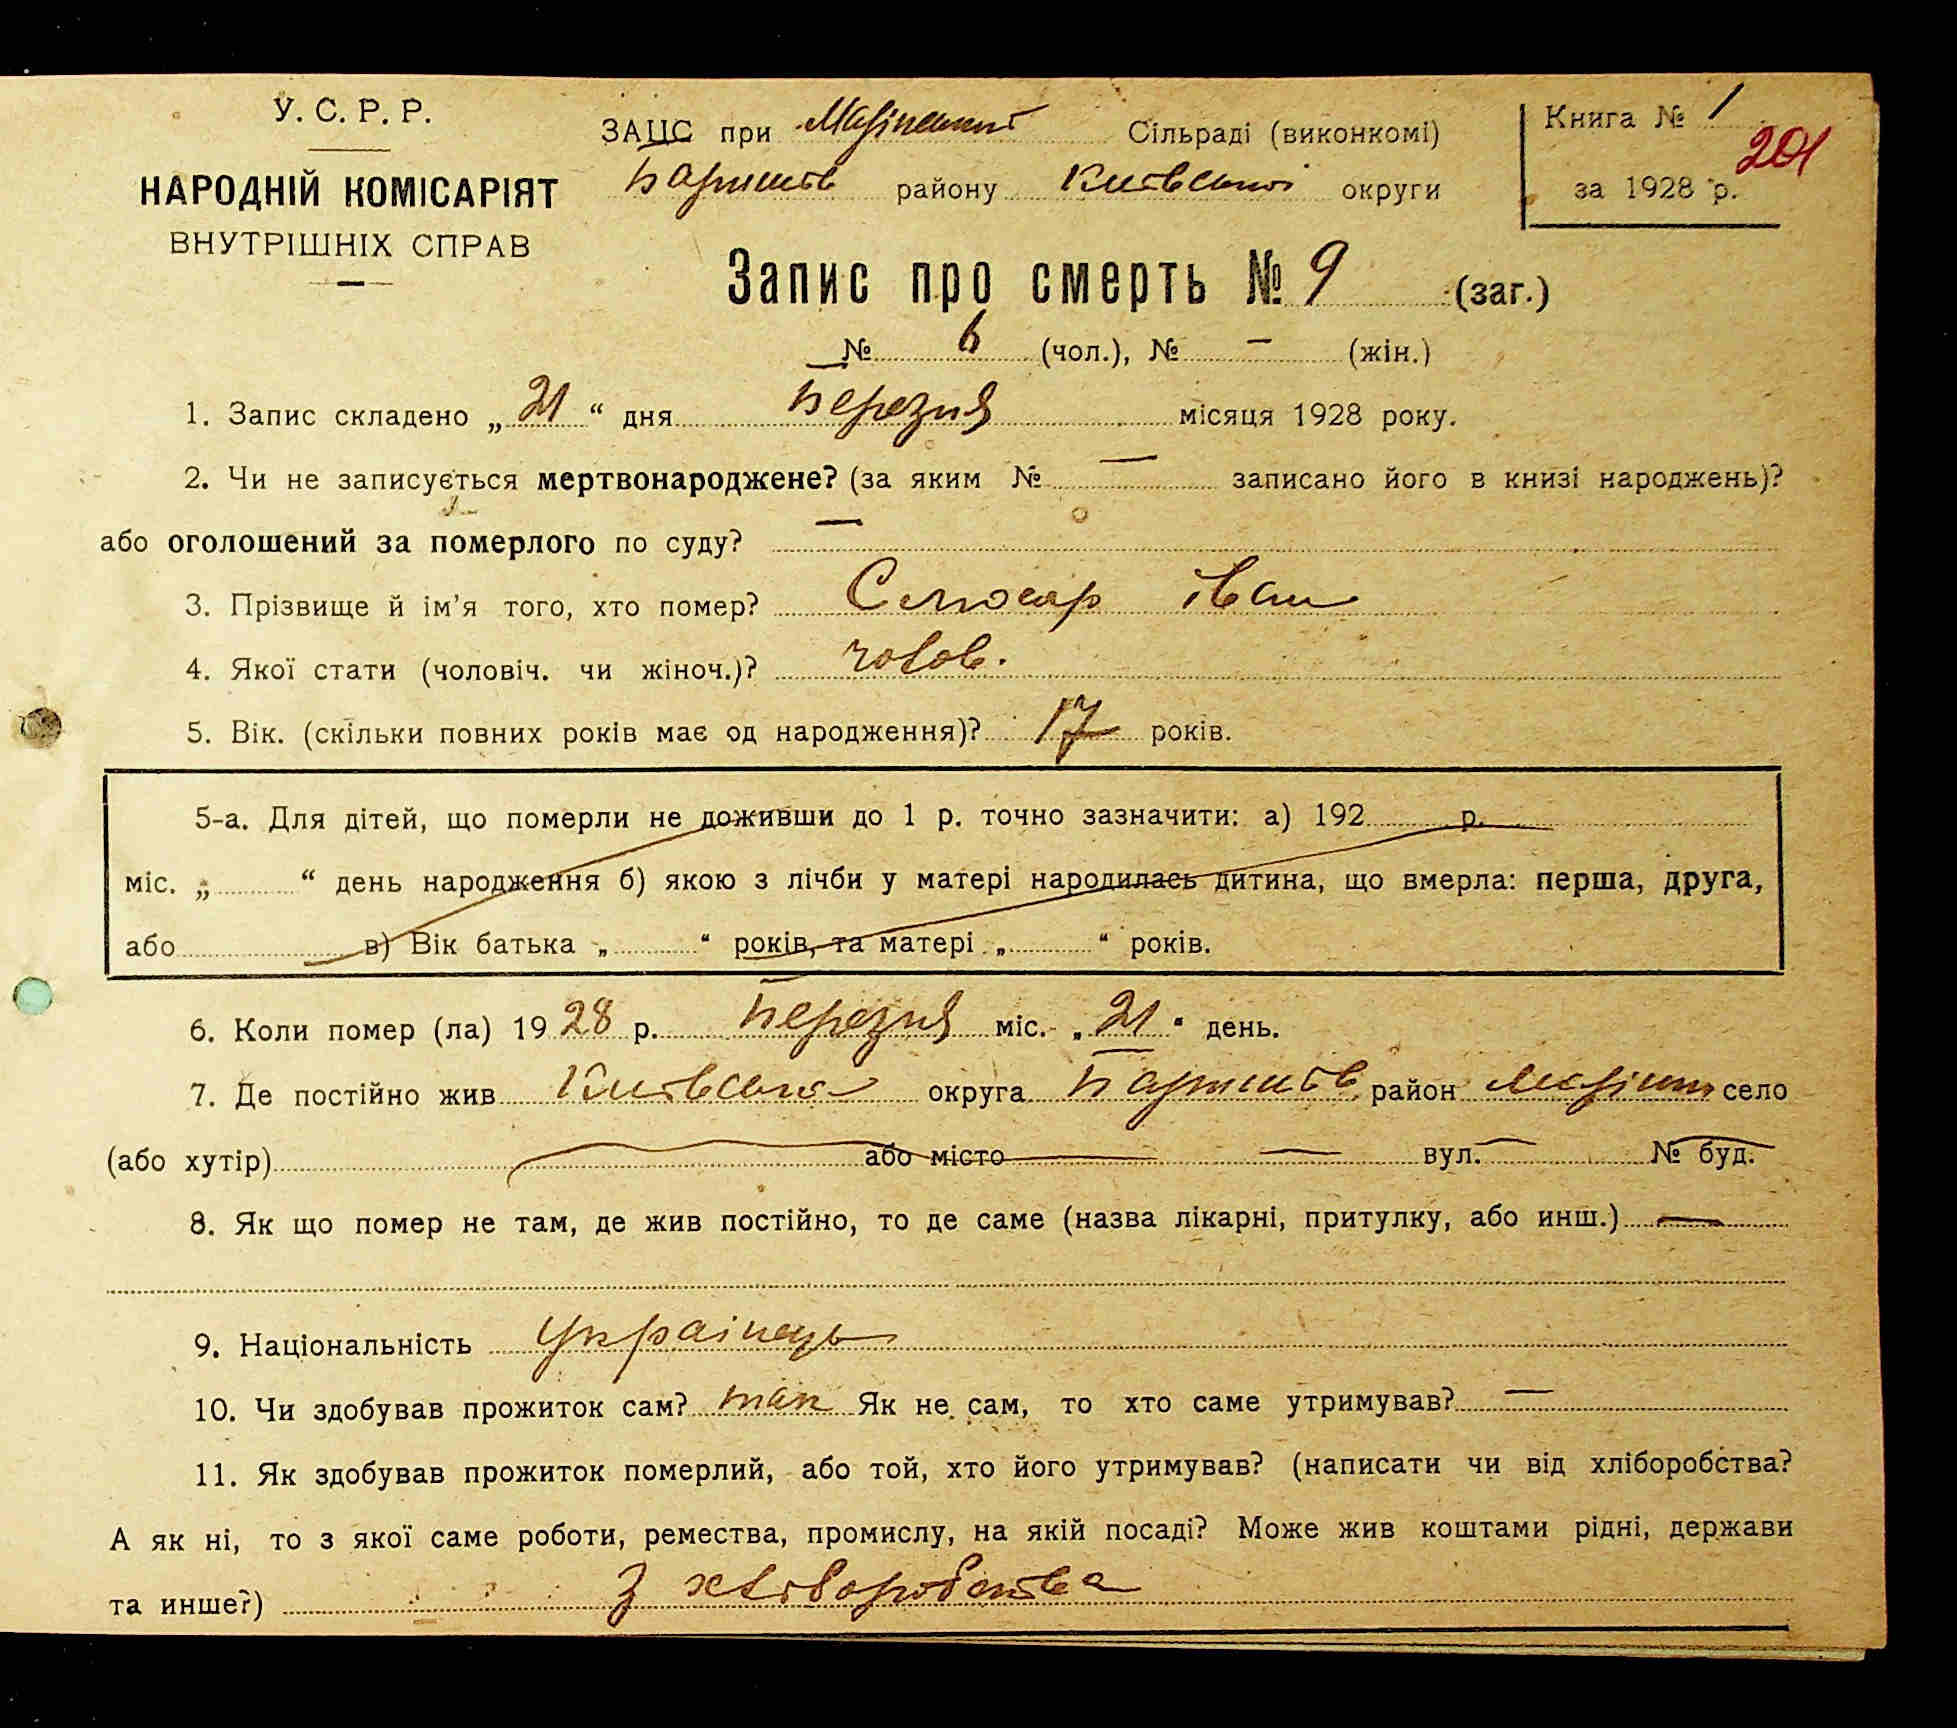 У. С. Р. Р.
НАРОДНІЙ КОМІСАРІЯТ
ВНУТРІШНІХ СПРАВ
ЗАЦС при Сільраді (виконкомі)
Баришів району Київської округи
Книга № 1
201
за 1928 р.
Запис про смерть № 9 (заг.)
№ 6 (чол.), № — (жін.)
1. Запис складено „ 21 “ дня Березня місяця 1928 року.
2. Чи не записується мертвонароджене? (за яким № — записано його в книзі народжень)?
або оголошений за померлого по суду? —
3. Прізвище й ім'я того, хто помер? Слюсар Іван
4. Якої стати (чоловіч. чи жіноч.)? чолов.
5. Вік. (скільки повних років має од народження)? 17 років.
5-а. Для дітей, що померли не доживши до 1 р. точно зазначити: а) 192 р.
міс. „ “ день народження б) якою з лічби у матері народилась дитина, що вмерла: перша, друга,
або в) Вік батька „ “ років, та матері „ “ років.
6. Коли помер (ла) 1928 р. Березня міс. „ 21 “ день.
7. Де постійно жив Київська округа Баришів район село
(або хутір) або місто — — вул. — № буд.
8. Як що помер не там, де жив постійно, то де саме (назва лікарні, притулку, або инш.) —
9. Національність українець
10. Чи здобував прожиток сам? так Як не сам, то хто саме утримував? —
11. Як здобував прожиток померлий, або той, хто його утримував? (написати чи від хліборобства?
А як ні, то з якої саме роботи, ремества, промислу, на якій посаді? Може жив коштами рідні, держави
та инше?) З хліборобства